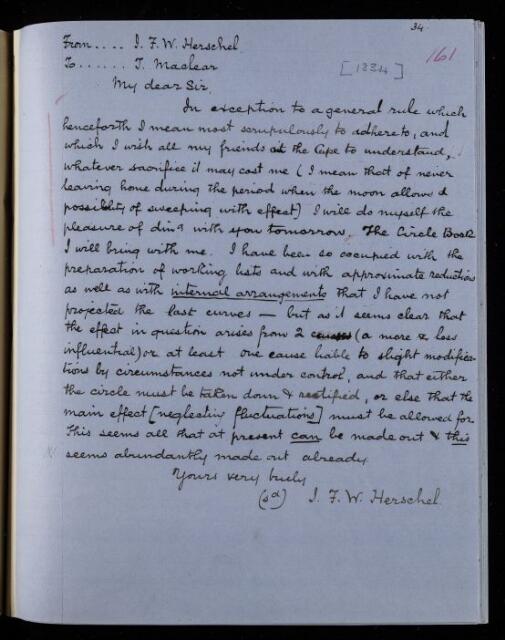 34.
161
From.... J. F. W. Herschel
To...... T. Maclear
[1834]
My dear Sir,
In exception to a general rule which
henceforth I mean most scrupulously to adhere to, and
which I wish all my friends at the Cape to understand,
whatever sacrifice it may cost me (I mean that of never
leaving home during the period when the moon allows a
possibility of sweeping with effect) I will do myself the
pleasure of ding with you tomorrow. The Circle Book
I will bring with me. I have been so occupied with the
preparation of working lists and with approximate reductions
as well as with internal arrangements that I have not
projected the last curves — but as it seems clear that
the effect in question arises from 2 causes (a more & less
influential) or at least one cause liable to slight modifica-
tions by circumstances not under control, and that either
the circle must be taken down & rectified, or else that the
main effect [neglecting fluctuations] must be allowed for.
This seems all that at present can be made out & this
seems abundantly made out already
Yours very truly
(sd) J. F. W. Herschel